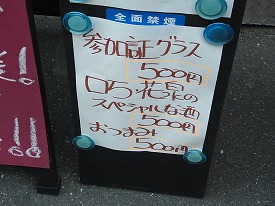 全面禁煙
参加証グラス
500円
口万花泉の
スペシャルな酒
500円
おつまみ
500円